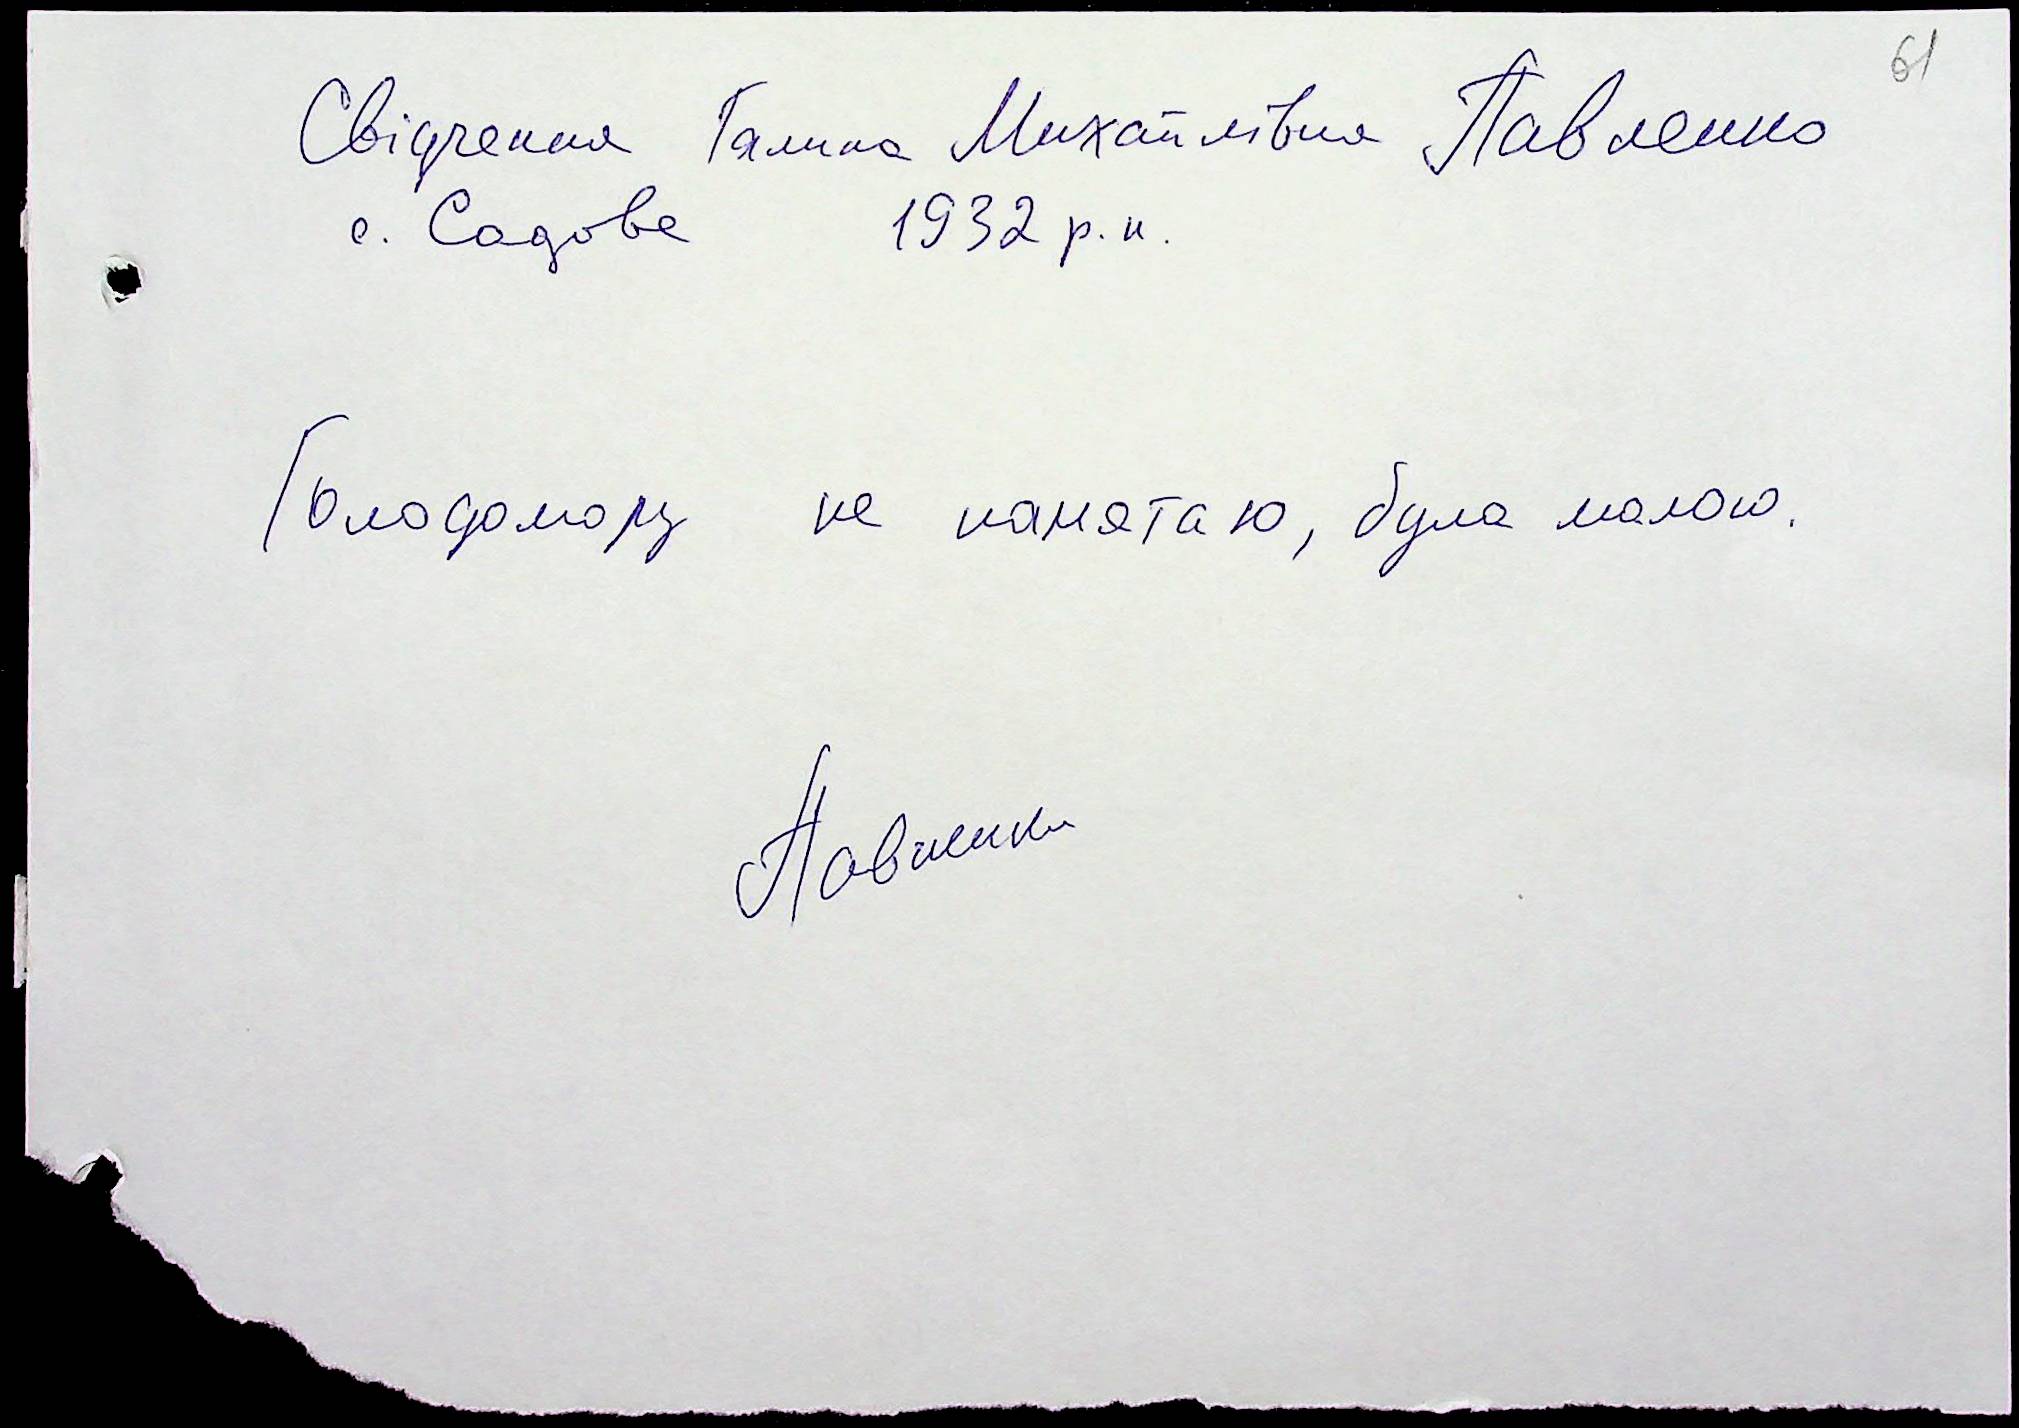 61
Свідчення Галина Михайлівна Павленко
с. Садове 1932 р.н.
Голодомору не памятаю, була малою.
Павленко